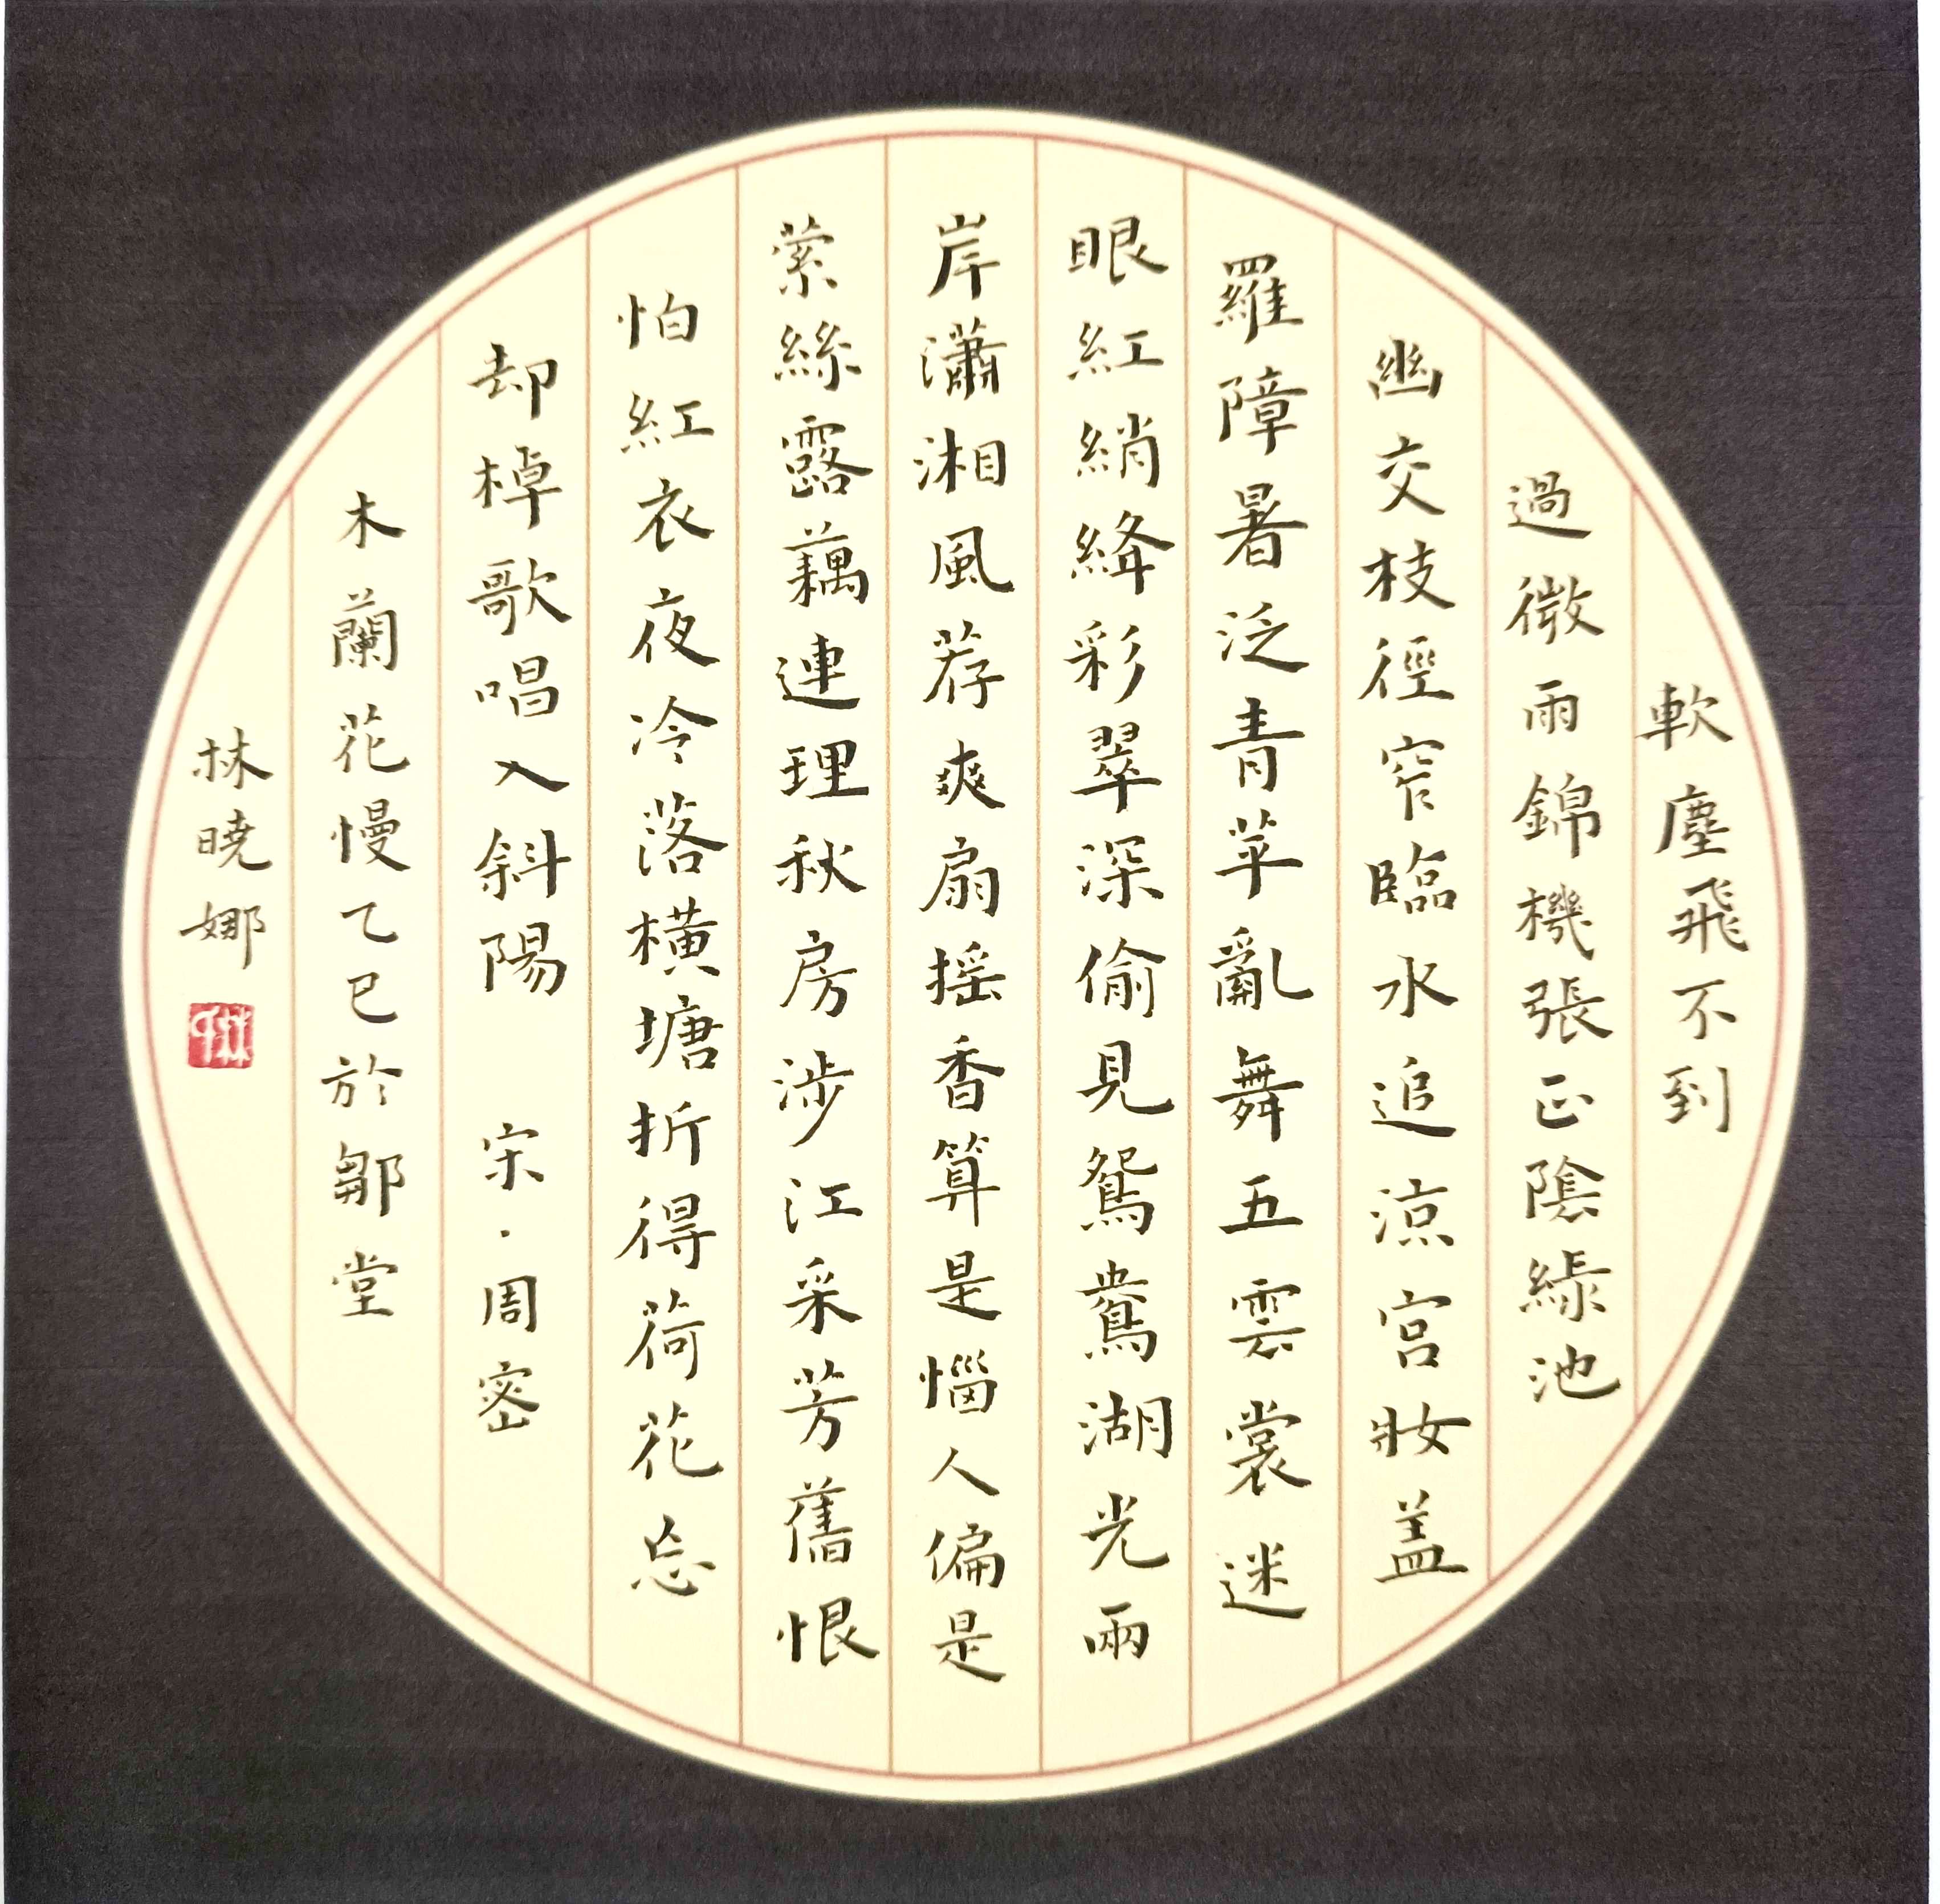 軟塵飛不到
過微雨錦機張正陰綠池
幽交枝徑窄臨水追涼宮妝蓋
羅障暑泛青苹亂舞五雲裳迷
眼紅綃絳彩翠深偷見鴛鴦湖光兩
岸瀟湘風荐爽扇摇香算是惱人偏是
縈絲露藕連理秋房涉江采芳舊恨
怕紅衣夜冷落橫塘折得荷花忘
却棹歌唱入斜陽 宋·周密
木蘭花慢乙巳於鄒堂
林曉娜